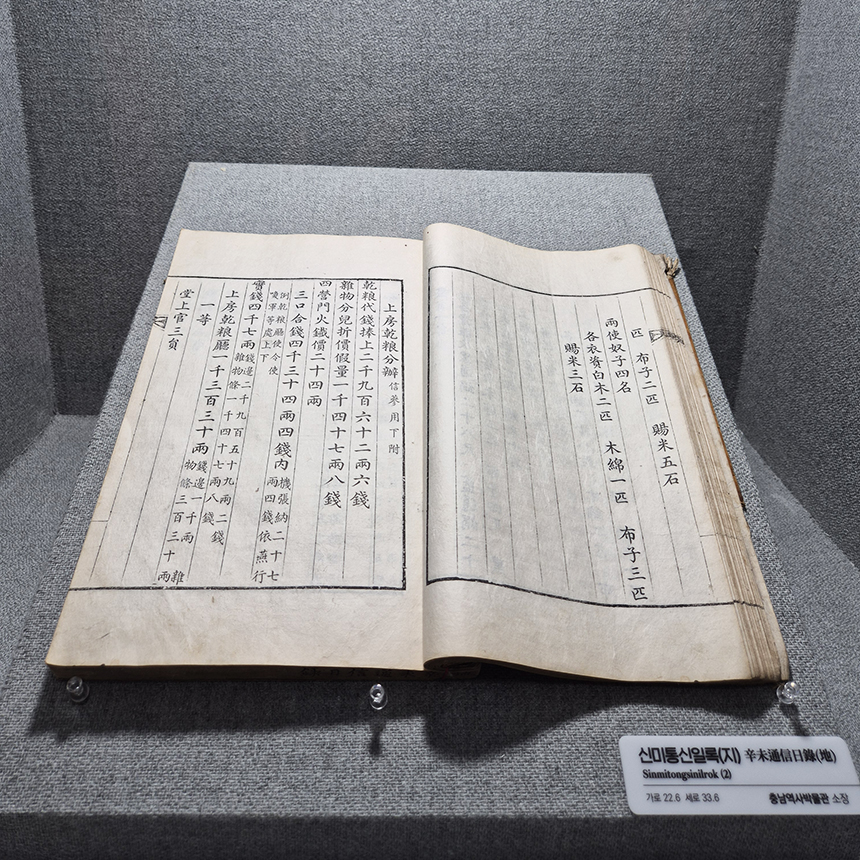 匹 布子二匹 賜米五石
兩使奴子四名
各衣資白木二匹 木綿一匹 布子三匹
賜米三石
上房乾粮分辦 信蔘用下附
乾粮代錢捧上二千九百六十二兩六錢
雜物分兒折價假量一千四十七兩八錢
四營門火鐵價二十四兩
三口合錢四千三十四兩四錢內 機張納二十七兩四錢依燕行
例乾粮廳使令使喚軍等處上下
實錢四千七兩 錢邊二千九百五十九兩二錢雜物條一千四十七兩八錢
上房乾粮廳一千三百三十兩 錢邊一千兩雜物條三百三十兩
一等
堂上官三員
신미통신일록(지) 辛未通信日錄(地)
Sinmitongsinilrok (2)
가로 22.6 세로 33.6 충남역사박물관 소장